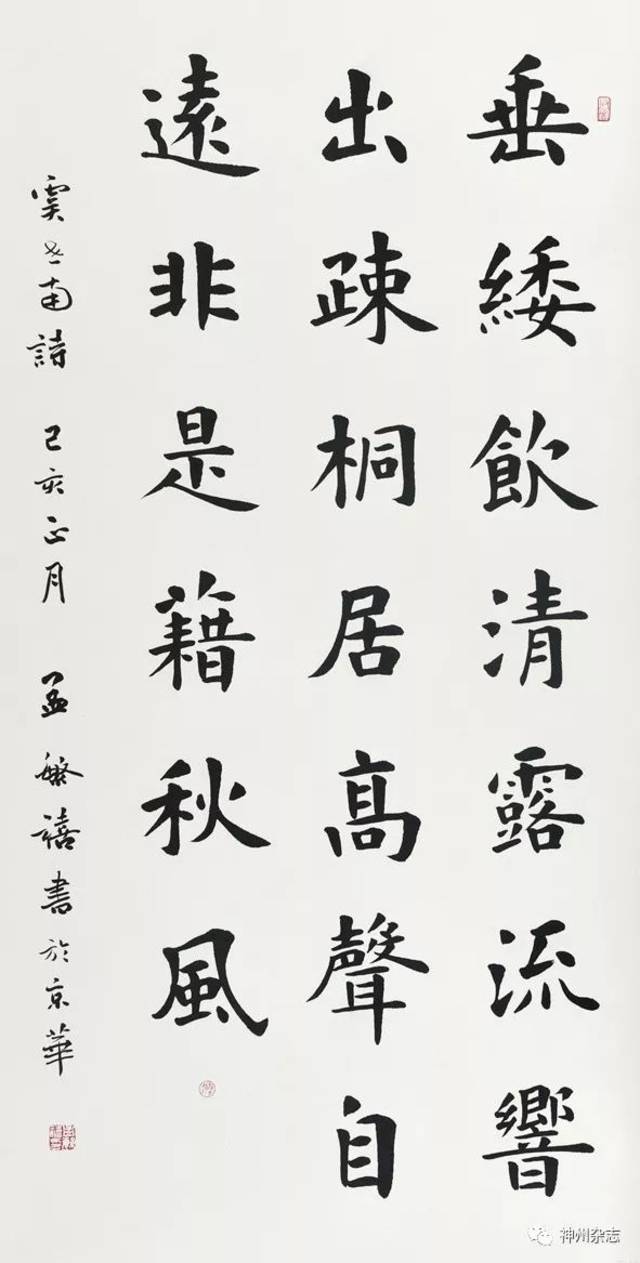 垂緌飲清露流響
出疎桐居高聲自
遠非是藉秋風
虞世南詩 己亥正月 孟繁禧書於京華
神州杂志